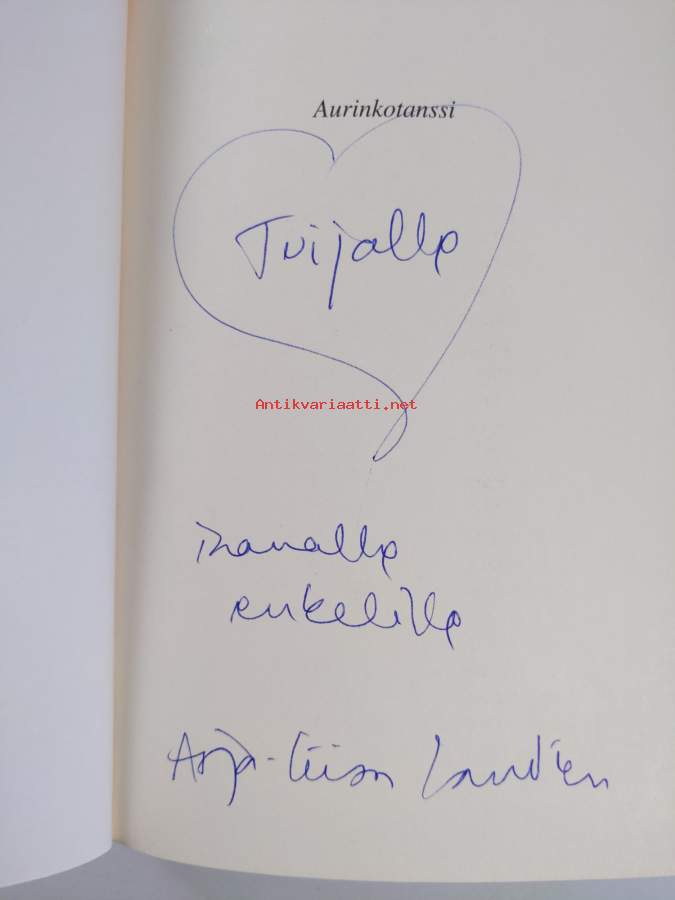 Aurinkotanssi
Tuijalle
Antikvariaatti.net
ihanalle
enkelille
Arja-Liisa